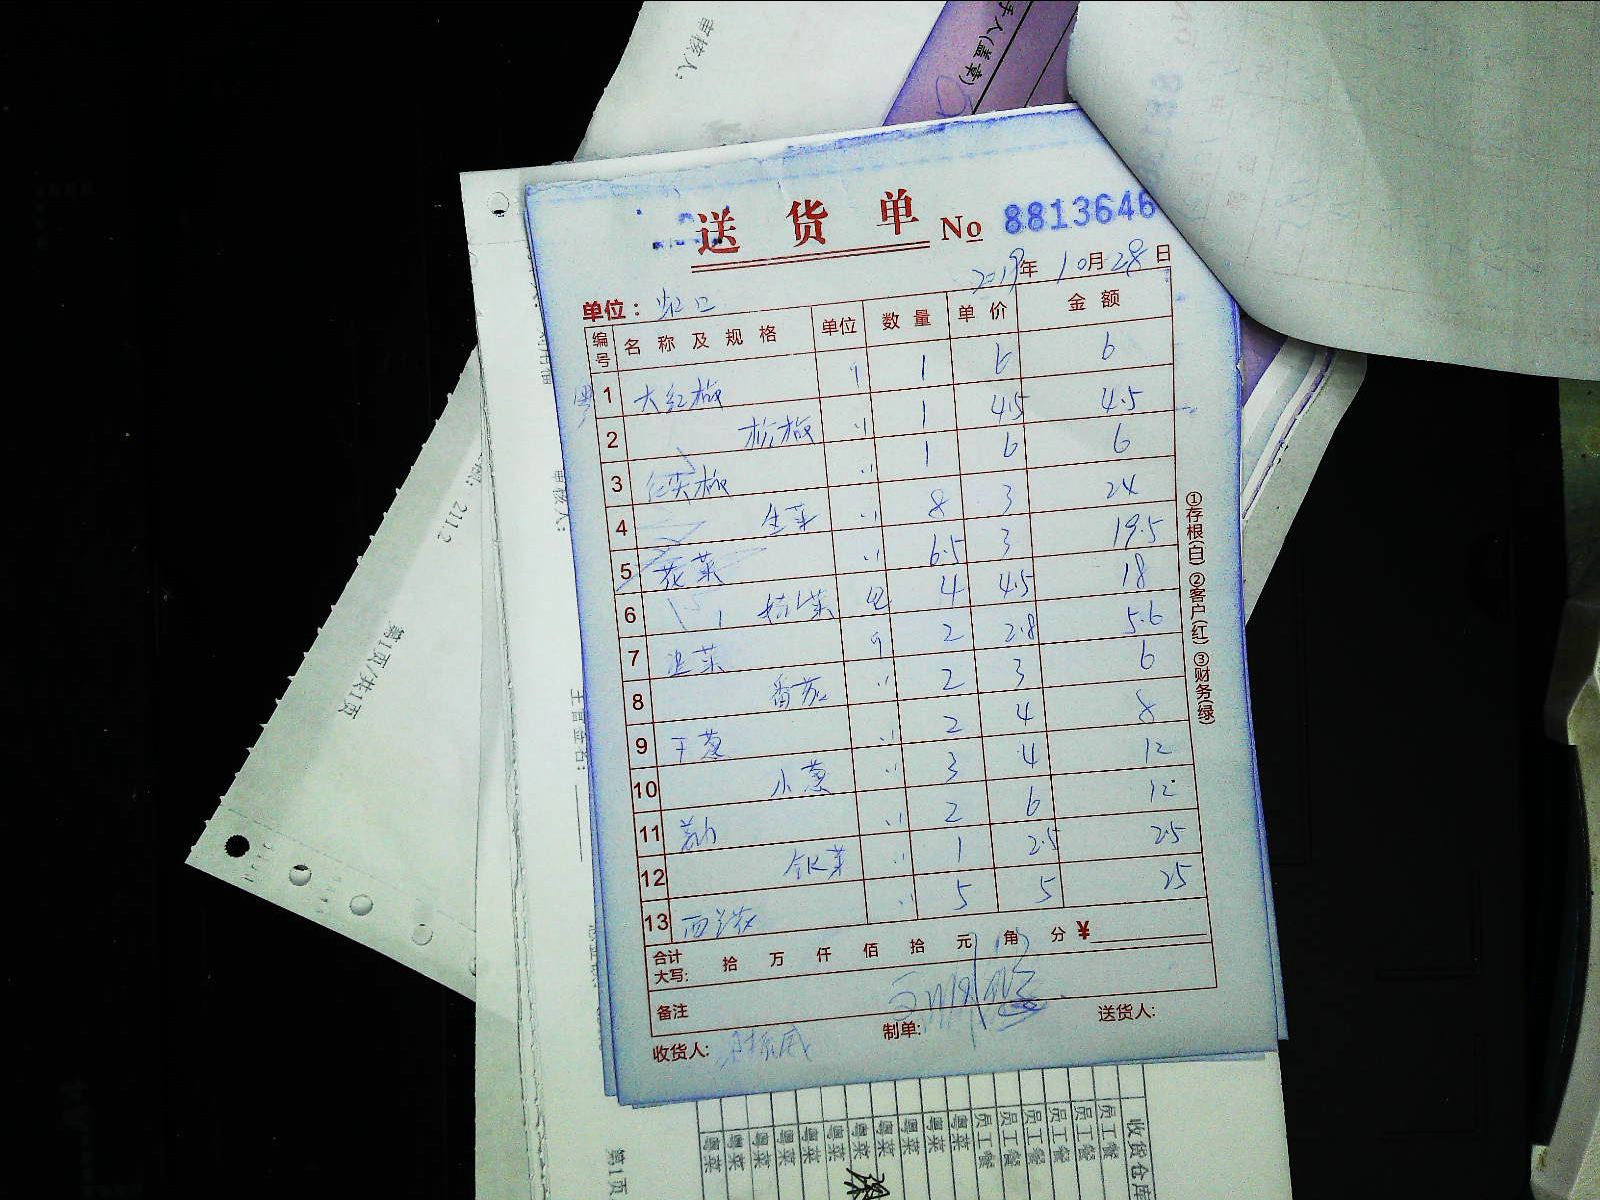 审核人:
手人(盖章)
送货单 No 8813646
2019年10月28日
单位:
编号 名称及规格 单位 数量 单价 金额
1 大红椒 斤 1 6 6
2 杭椒 〃 1 4.5 4.5
3 红尖椒 〃 1 6 6
4 生菜 〃 8 3 24
5 花菜 〃 6.5 3 19.5
6 4 4.5 18
7 斤 2 2.8 5.6
8 番茄 〃 2 3 6
9 干葱 〃 2 4 8
10 小葱 〃 3 4 12
11 〃 2 6 12
12 银芽 〃 1 2.5 2.5
13 西兰花 〃 5 5 25
合计大写: 拾 万 仟 佰 拾 元 角 分 ¥
备注
收货人: 制单: 送货人:
①存根(白) ②客户(红) ③财务(绿)
审核人:
211.2
第1页/共1页
第1页
收货仓库
员工餐
员工餐
员工餐
员工餐
员工餐
员工餐
粤菜
粤菜
粤菜
粤菜
粤菜
粤菜
粤菜
粤菜
粤菜
粤菜